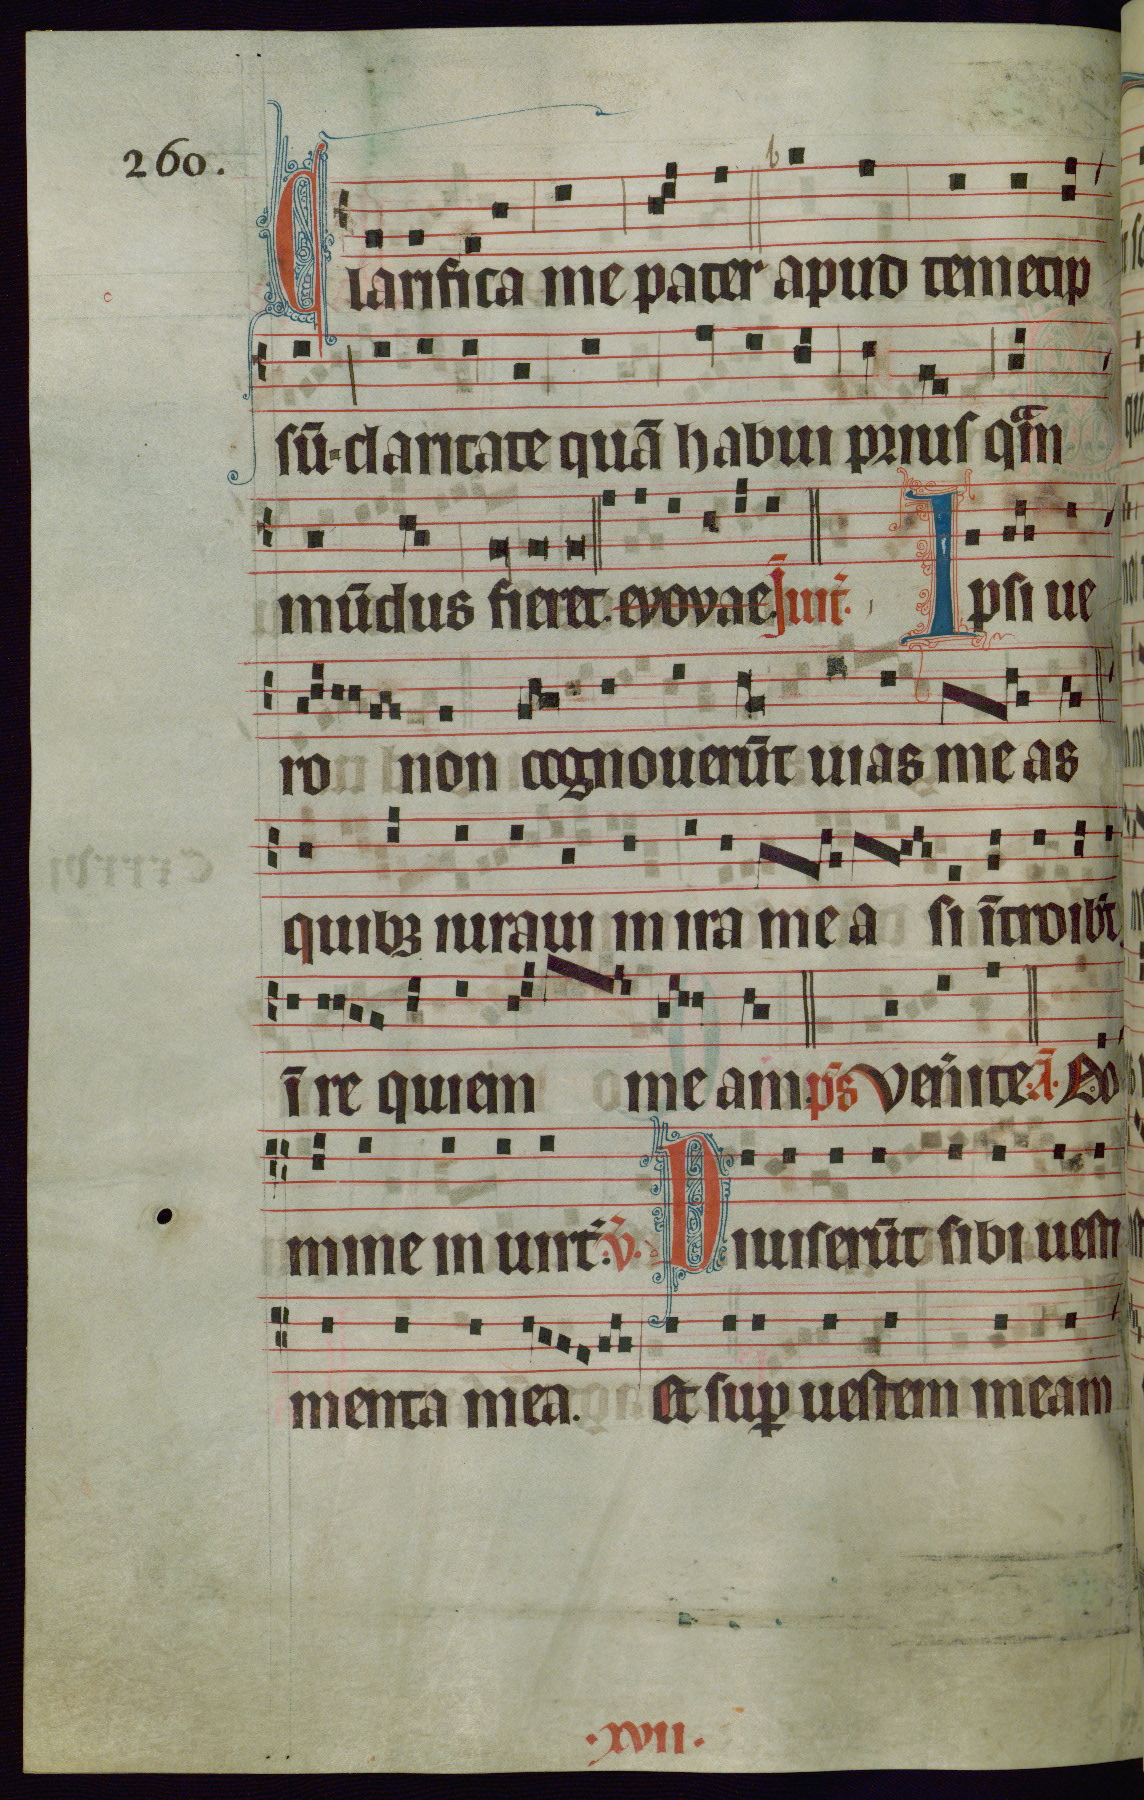 260.
Clarifica me pater apud temetip
sū-claritate quā habui prius qᷓm
mūdus fieret. evovae. Inuit̄. Ipsi ue
ro non cognouerūt uias me as
quibꝫ iuraui in ira me a si ītroibt̄
ī re quiem me am. p̄s Venite. A̅. Do
mine in uirt̄. v̄. Diuiserūt sibi uesti
menta mea. Et suꝑ uestem meam
.XVII.